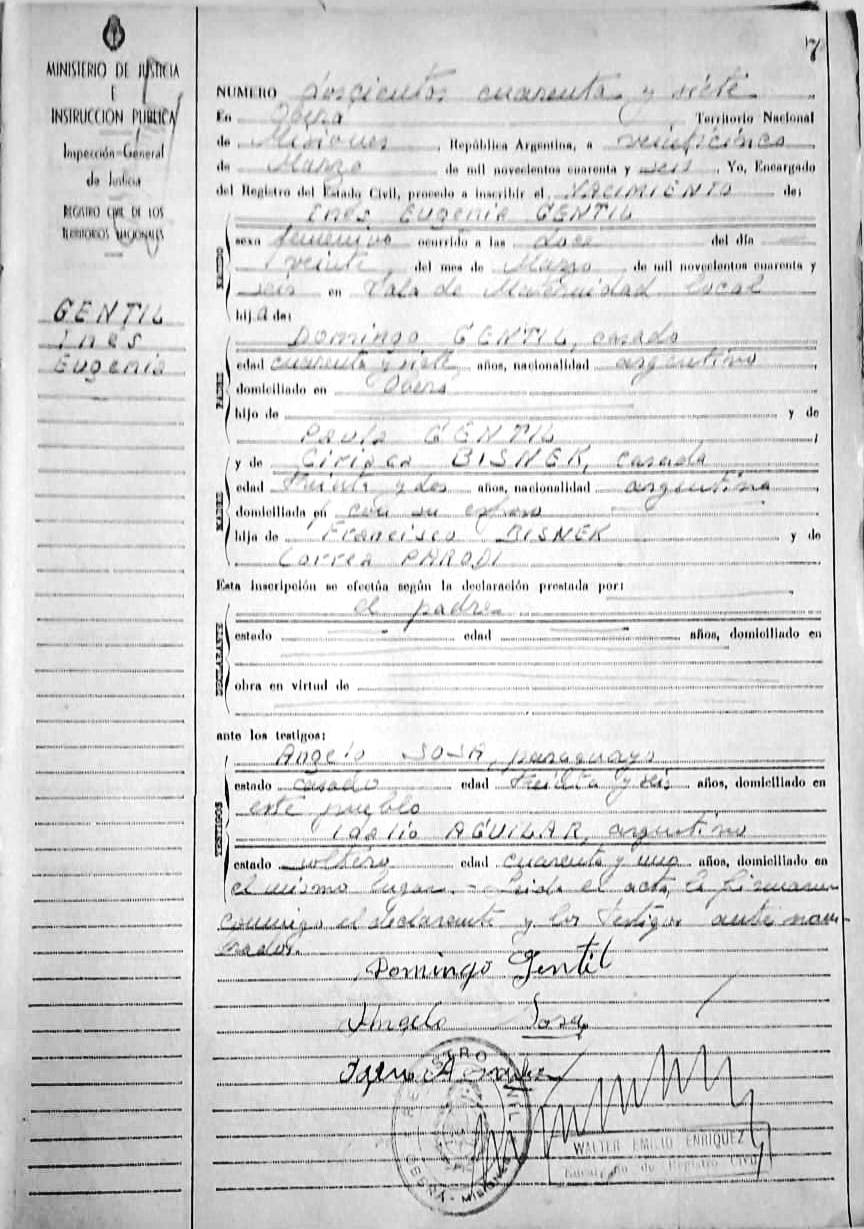 7
MINISTERIO DE JUSTICIA
E
INSTRUCCIÓN PÚBLICA
Inspección General
de Justicia
REGISTRO CIVIL DE LOS
TERRITORIOS NACIONALES
GENTIL
Ines
Eugenia
NUMERO doscientos cuarenta y siete
En Oberá Territorio Nacional
de Misiones, República Argentina, a veinticinco
de Marzo de mil novecientos cuarenta y seis. Yo, Encargado
del Registro del Estado Civil, procedo a inscribir el NACIMIENTO de:
Ines Eugenia GENTIL
sexo femenino ocurrido a las doce del día
veinte del mes de Marzo de mil novecientos cuarenta y
seis en Sala de Maternidad local
hija de:
PADRE
Domingo GENTIL, casado
edad cuarenta y siete años, nacionalidad argentino
domiciliado en Oberá
hijo de y de
Paula GENTIL
MADRE
y de Ciriaca BISNEK, casada
edad treinta y dos años, nacionalidad argentina
domiciliada en con su esposo
hija de Francisco BISNEK y de
Correa PARODI
Esta inscripción se efectúa según la declaración prestada por:
el padre
DECLARANTE
estado edad años, domiciliado en
obra en virtud de
ante los testigos:
TESTIGOS
Angelo SOSA, paraguayo
estado casado edad treinta y seis años, domiciliado en
este pueblo
Idalio AGUILAR, argentino
estado soltero edad cuarenta y uno años, domiciliado en
el mismo lugar.- Leida el acta, la firman
conmigo el declarante y los testigos ante nom-
brados.
Domingo Gentil
Angelo Sosa
WALTER EMILIO ENRIQUEZ
Encargado de Registro Civil
OBERÁ - MISIONES